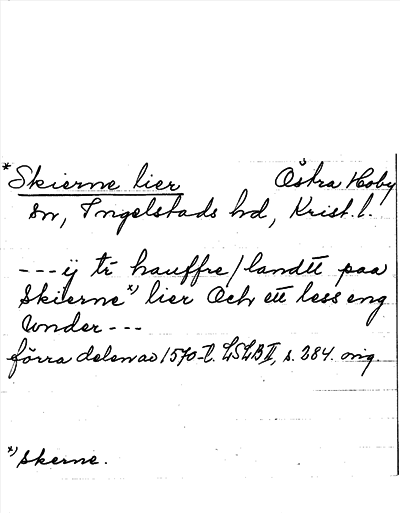 *Skierne lier Östra Hoby
sn, Ingelstads hd, Krist. l.
---ij tr hauffre/landtt paa
Skierne*) lier Och ett less eng
Vnder---
förra delen av 1570-t. LSLB II, s. 284. orig.
*) Skerne.